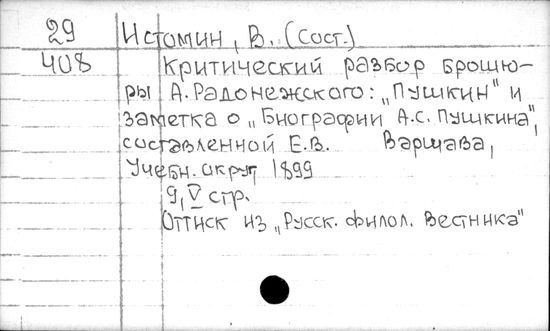 29 Истомин, В. (Сост.)
408 Критический разбор брошю-
ры А. Радонежского: „Пушкин" и
заметка о „Биографии А.С. Пушкина",
составленной Е.В. Варшава,
Учебн. округ 1899
9, V стр.
Оттиск из „Русск. филол. Вестника"